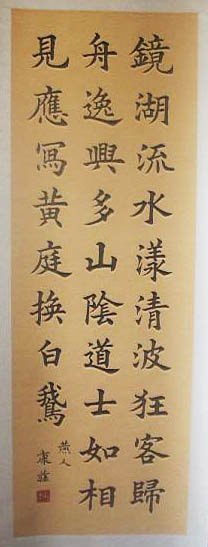 鏡湖流水漾清波狂客歸
舟逸興多山陰道士如相
見應寫黃庭換白鵞
燕人
康雍